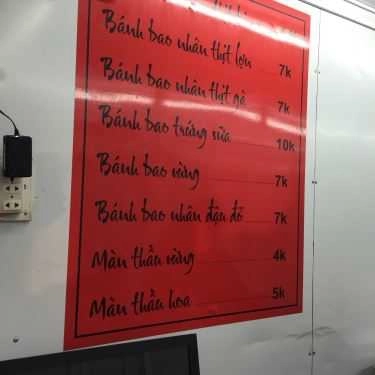 Bánh bao nhân thịt lợn 7k
Bánh bao nhân thịt gà 7k
Bánh bao trứng sữa 10k
Bánh bao vừng 7k
Bánh bao nhân đậu đỏ 7k
Màn thầu vừng 4k
Màn thầu hoa 5k